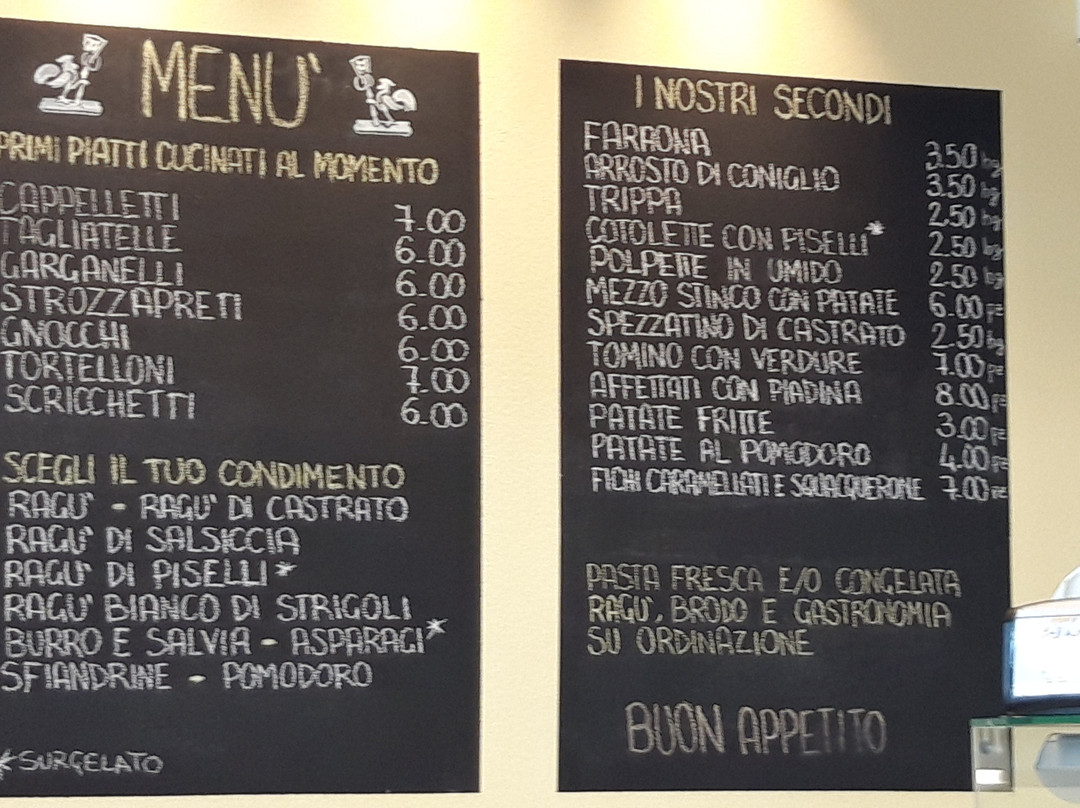 MENU'
PRIMI PIATTI CUCINATI AL MOMENTO
CAPPELLETTI 7.00
TAGLIATELLE 6.00
GARGANELLI 6.00
STROZZAPRETI 6.00
GNOCCHI 6.00
TORTELLONI 7.00
SCRICCHETTI 6.00
SCEGLI IL TUO CONDIMENTO
RAGU' - RAGU' DI CASTRATO
RAGU' DI SALSICCIA
RAGU' DI PISELLI*
RAGU' BIANCO DI STRIGOLI
BURRO E SALVIA - ASPARAGI*
SFIANDRINE - POMODORO
*SURGELATO
I NOSTRI SECONDI
FARAONA 3.50 hg
ARROSTO DI CONIGLIO 3.50 hg
TRIPPA 2.50 hg
COTOLETTE CON PISELLI* 2.50 hg
POLPETTE IN UMIDO 2.50 hg
MEZZO STINCO CON PATATE 6.00 pz
SPEZZATINO DI CASTRATO 2.50 hg
TOMINO CON VERDURE 7.00
AFFETTATI CON PIADINA 8.00
PATATE FRITTE 3.00
PATATE AL POMODORO 4.00
FICHI CARAMELLATI E SQUACQUERONE 7.00
PASTA FRESCA E/O CONGELATA
RAGU', BRODO E GASTRONOMIA
SU ORDINAZIONE
BUON APPETITO